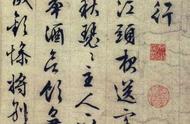 行
江頭夜送客
秋瑟〻主人
舉酒欲飲無
成歡慘將別